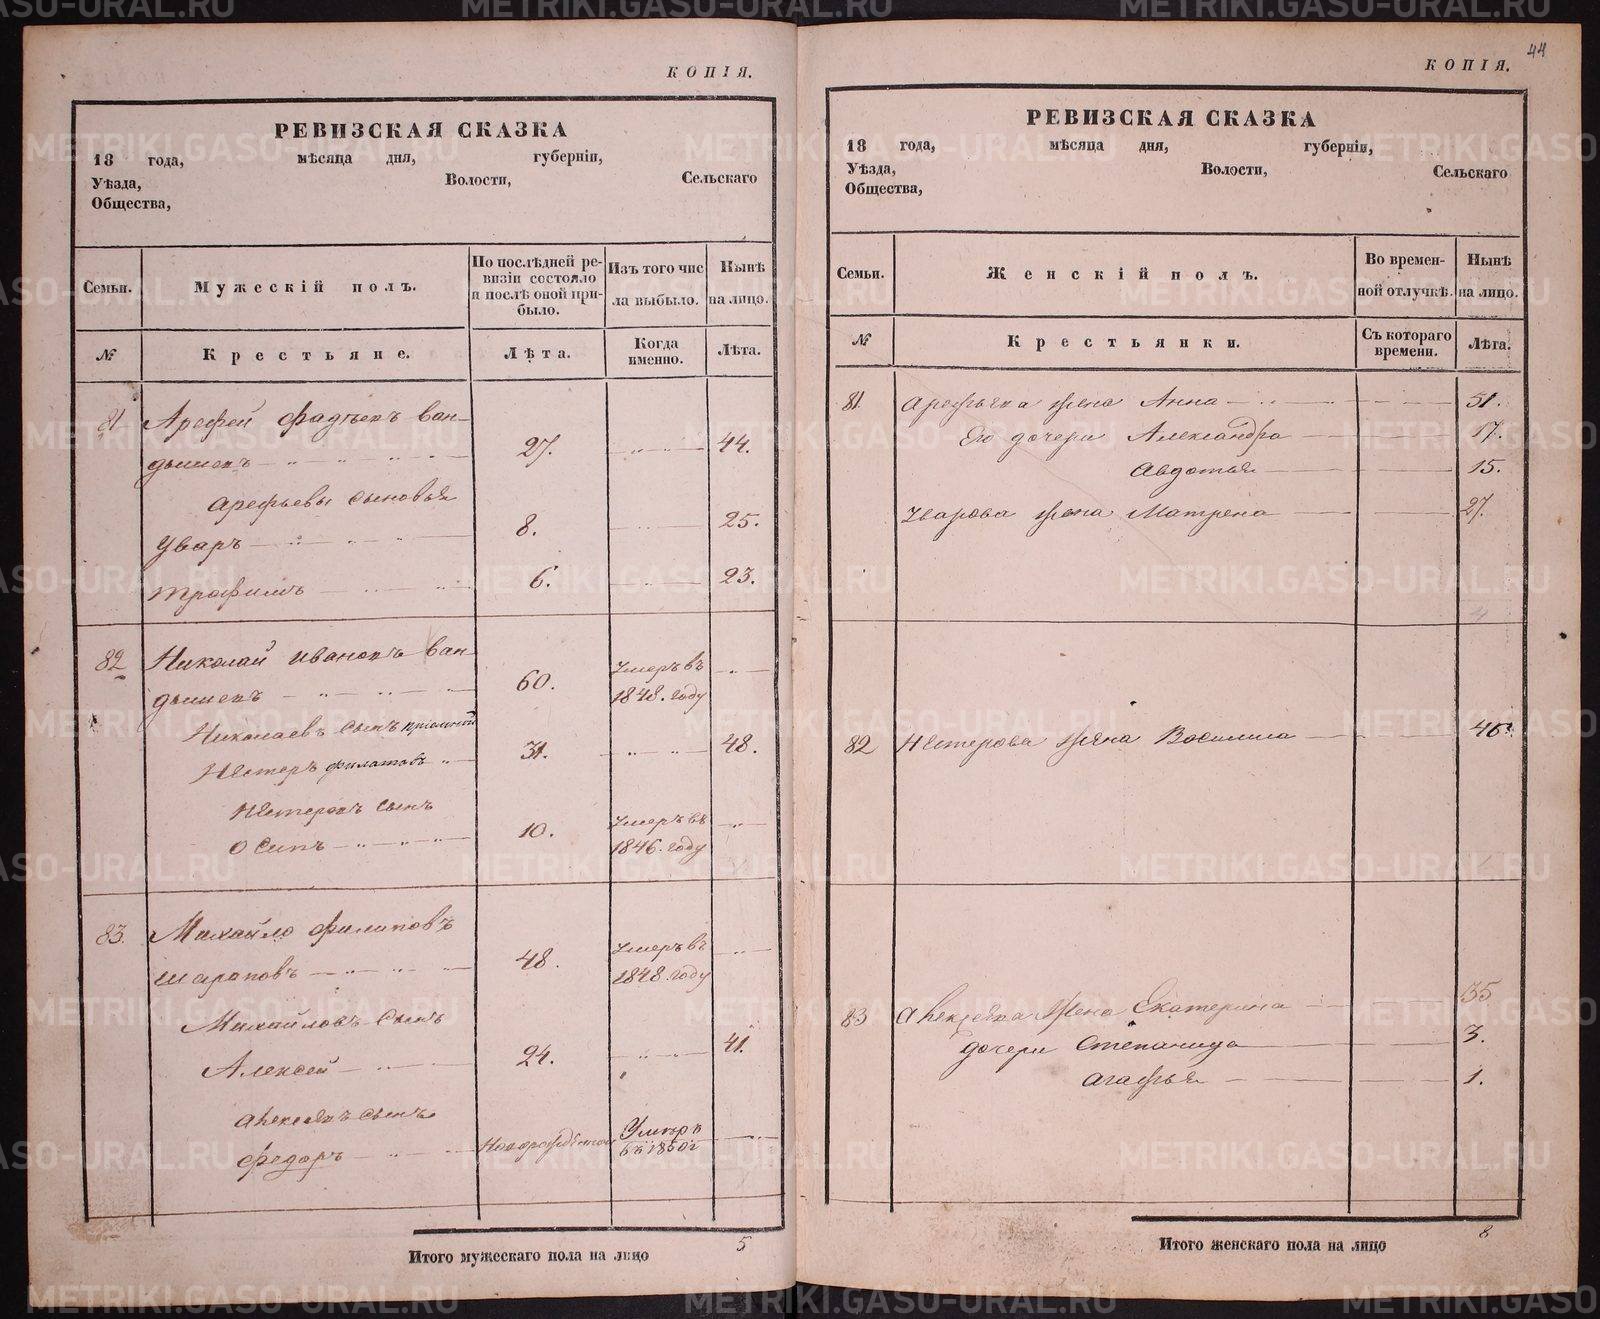 КОПІЯ.
РЕВИЗСКАЯ СКАЗКА
18 года, мѣсяца дня, губерніи,
Уѣзда, Волости, Сельскаго
Общества,
Семьи. Мужескій полъ. По послѣдней ревизіи состояло и послѣ оной прибыло. Изъ того числа выбыло. Нынѣ на лицо.
№ Крестьяне. Лѣта. Когда именно. Лѣта.
81 Арефей Фадѣевъ Ван-
дышевъ 27. 44.
Арефьевы сыновья
Уваръ 8. 25.
Трафимъ 6. 23.
82 Николай Ивановъ Ван-
дышевъ 60. Умеръ въ 1848. году
Николаевъ сынъ пріемной
Нестеръ Филатовъ 31. 48.
Нестеровъ сынъ
Осипъ 10. Умеръ въ 1846. году
83. Михайло Филиповъ
Шараповъ 48. Умеръ въ 1848. году
Михайловъ сынъ
Алексей 24. 41.
Алексеевъ сынъ
Федоръ Новорожденной Умеръ въ 1850 г
Итого мужескаго пола на лицо 5
44
КОПІЯ.
РЕВИЗСКАЯ СКАЗКА
18 года, мѣсяца дня, губерніи,
Уѣзда, Волости, Сельскаго
Общества,
Семьи. Женскій полъ. Во временной отлучкѣ. Нынѣ на лицо.
№ Крестьянки. Съ котораго времени. Лѣта.
81. Арефьева жена Анна 51.
Его дочери Александра 17.
Авдотья 15.
Уварова жена Матрена 27.
4
82 Нестерова жена Василиса 46.
1
83 Алексеева жена Екатерина 35
дочери Степанида 3.
Агафья 1.
Итого женскаго пола на лицо 8
METRIKI.GASO-URAL.RU